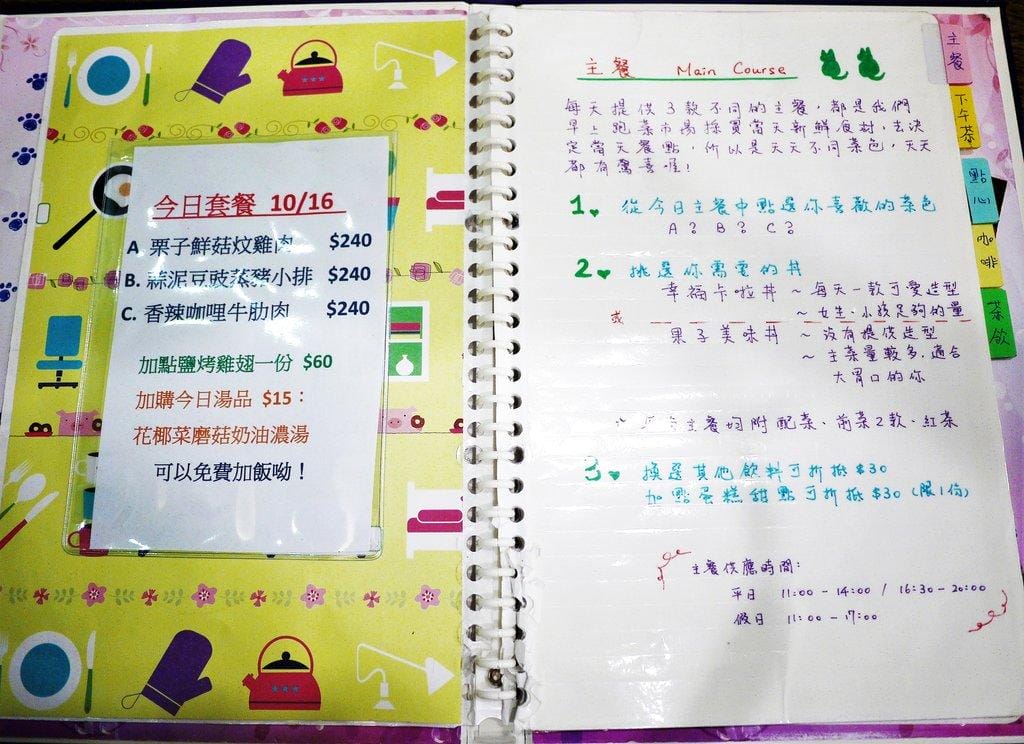 今日套餐 10/16
A. 栗子鮮菇炆雞肉 $240
B. 蒜泥豆豉蒸豬小排 $240
C. 香辣咖哩牛肋肉 $240
加點鹽烤雞翅一份 $60
加購今日湯品 $15：
花椰菜磨菇奶油濃湯
可以免費加飯呦！
主餐 Main Course
每天提供3款不同的主餐，都是我們
早上跑菜市場採買當天新鮮食材，去決
定當天餐點，所以是天天不同菜色，天天
都有驚喜喔！
1. 從今日主餐中點選你喜歡的菜色
A? B? C?
2. 挑選你需要的丼
幸福卡啦丼 ~ 每天一款可愛造型
~ 女生、小孩足夠的量
或
果子美味丼 ~ 沒有提供造型
~ 主菜量較多，適合
大胃口的你
主餐均附配菜、前菜2款、紅茶
3. 換選其他飲料可折抵$30
加點蛋糕甜點可折抵$30 (限1份)
主餐供應時間：
平日 11:00 - 14:00 / 16:30 - 20:00
假日 11:00 - 17:00
主餐
下午茶
點心
咖啡
茶飲